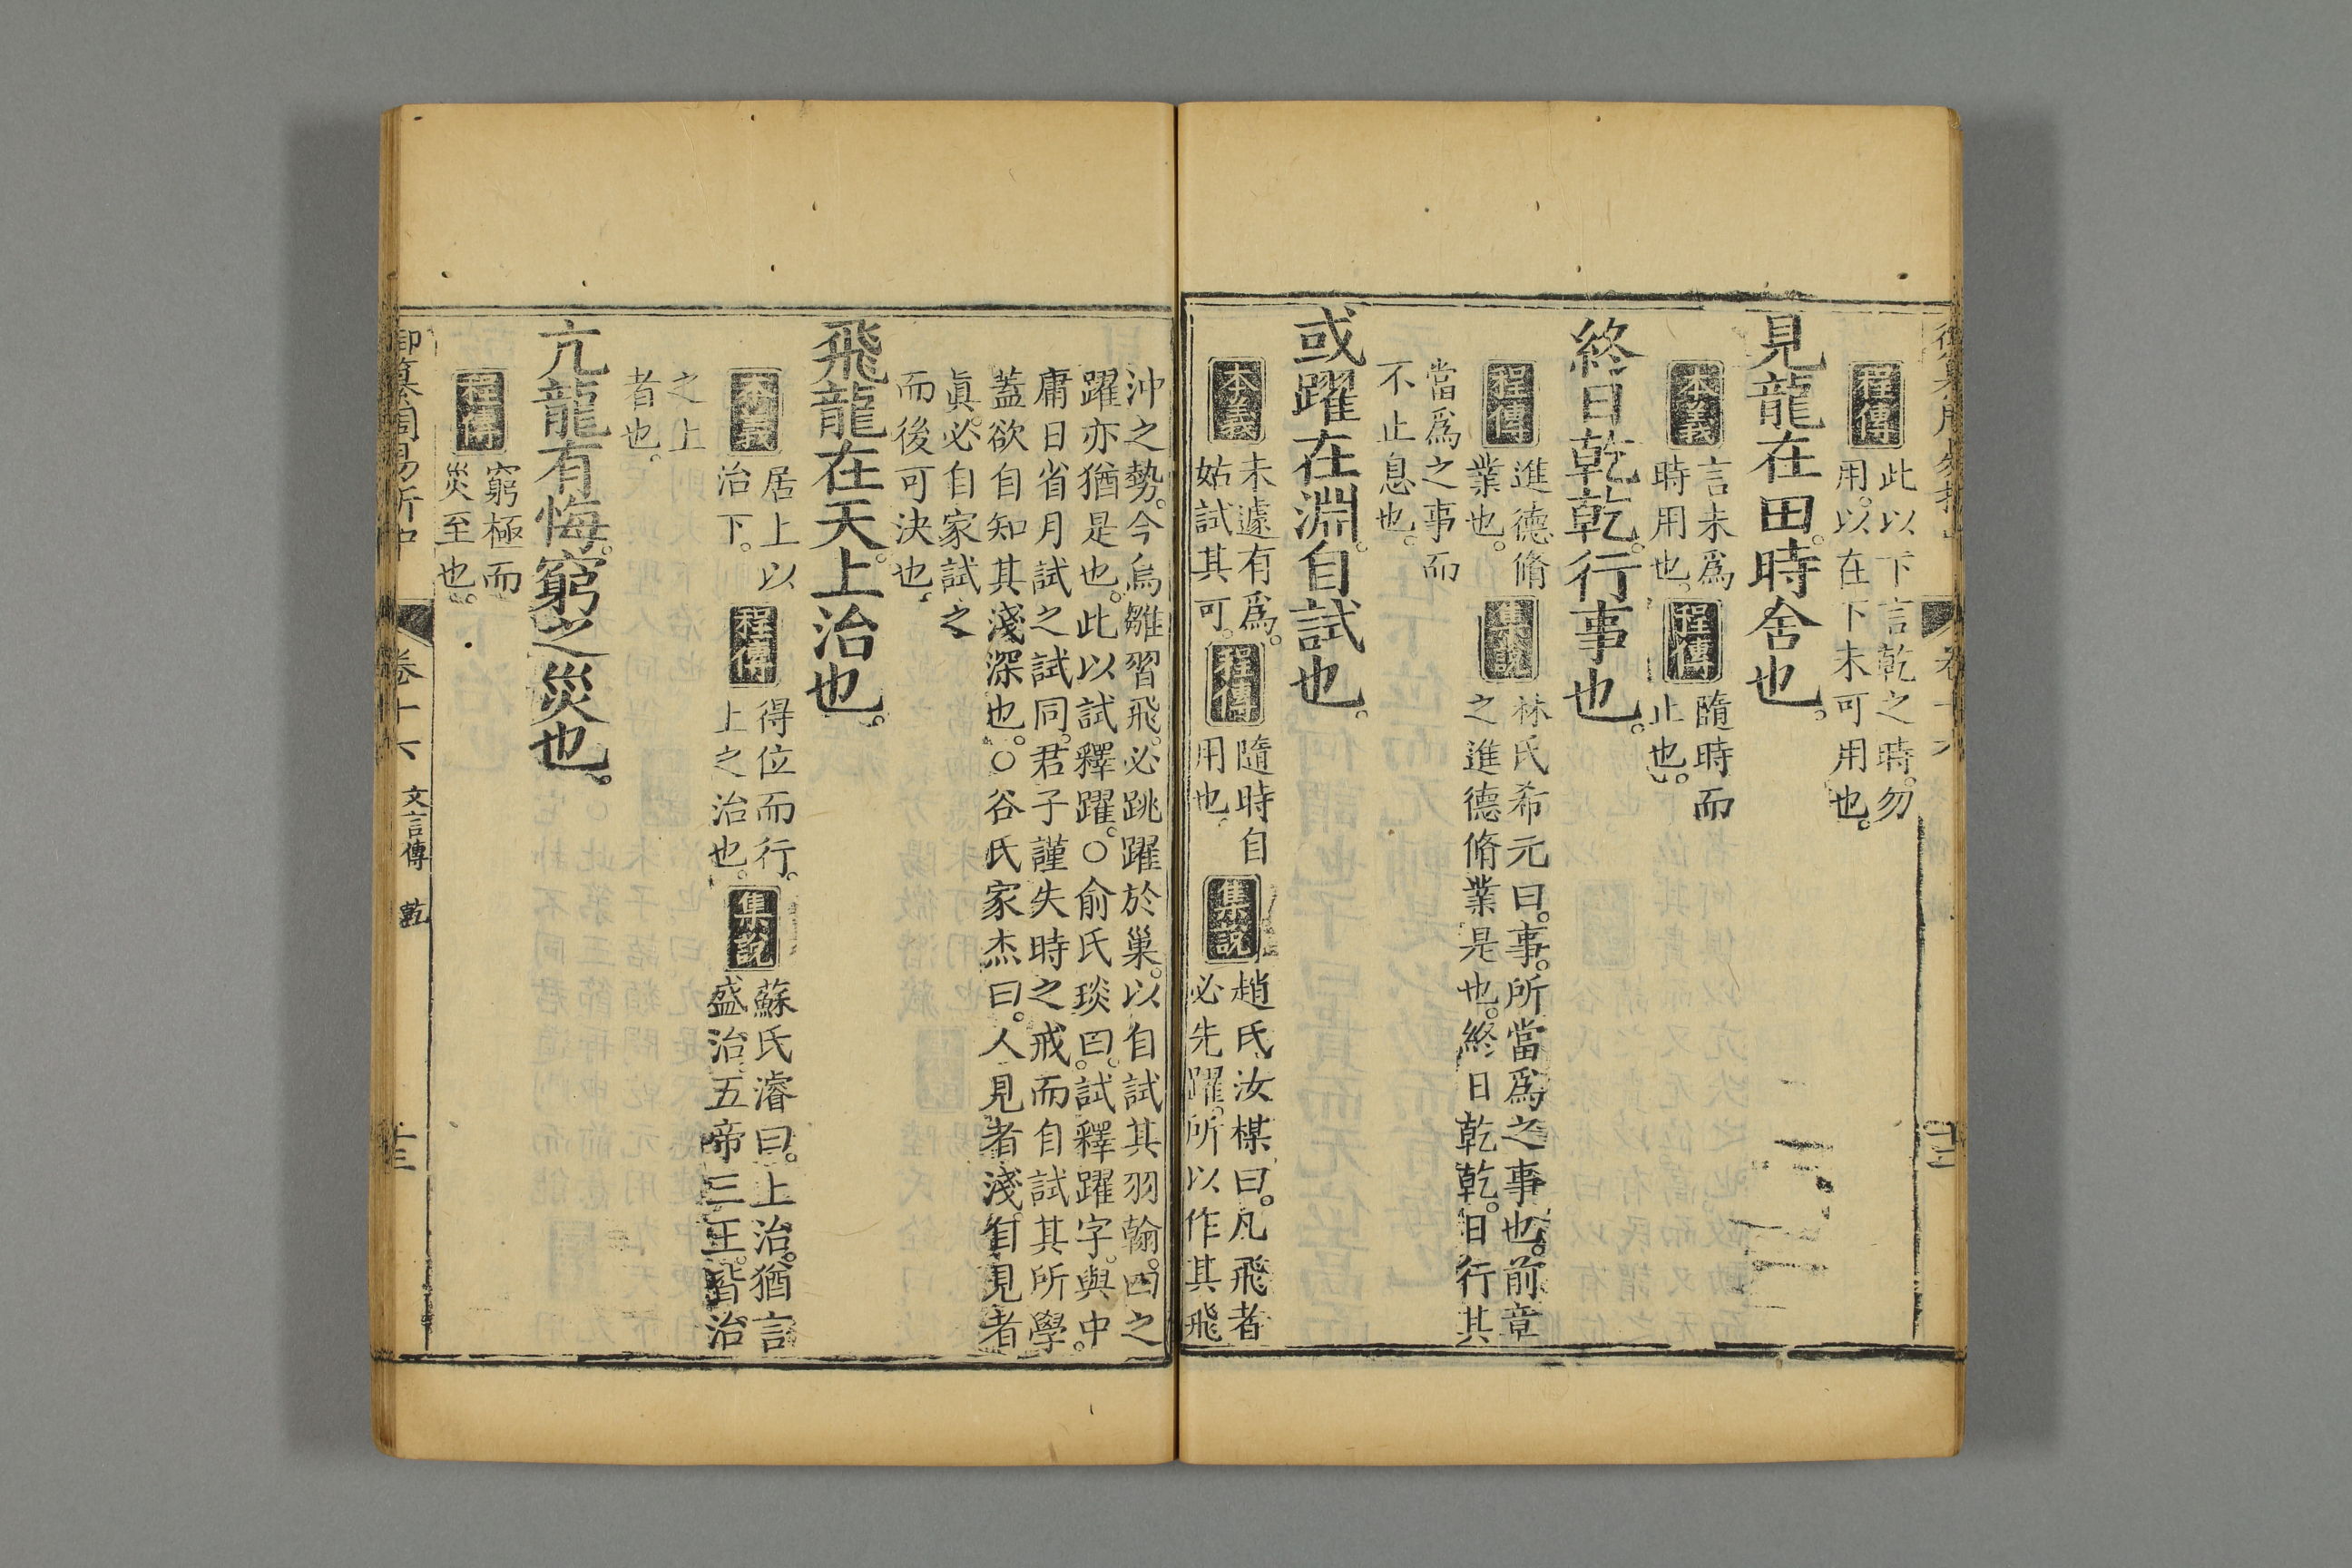 程傳
此以下言乾之時。勿
用。以在下未可用也。
見龍在田。時舍也。
本義
言未爲
時用也。
程傳
隨時而
止也。
終日乾乾。行事也。
程傳
進德脩
業也。
集說
林氏希元曰。事。所當爲之事也。前章
之進德脩業是也。終日乾乾。日行其
當爲之事而
不止息也。
或躍在淵。自試也。
本義
未遽有爲。
姑試其可。
程傳
隨時自
用也。
集說
趙氏汝楳曰。凡飛者
必先躍。所以作其飛
沖之勢。今烏雛習飛。必跳躍於巢。以自試其羽翰。四之
躍亦猶是也。此以試釋躍。○俞氏琰曰。試釋躍字。與中
庸日省月試之試同。君子謹失時之戒而自試其所學
蓋欲自知其淺深也。○谷氏家杰曰。人見者淺。自見者
眞。必自家試之
而後可決也。
飛龍在天。上治也。
本義
居上以
治下。
程傳
得位而行。
上之治也。
集說
蘇氏濬曰。上治。猶言
盛治。五帝三王。皆治
之上
者也。
亢龍有悔。窮之災也。
程傳
窮極而
災至也。
御纂周易折中
卷十六
文言傳
乾
十三